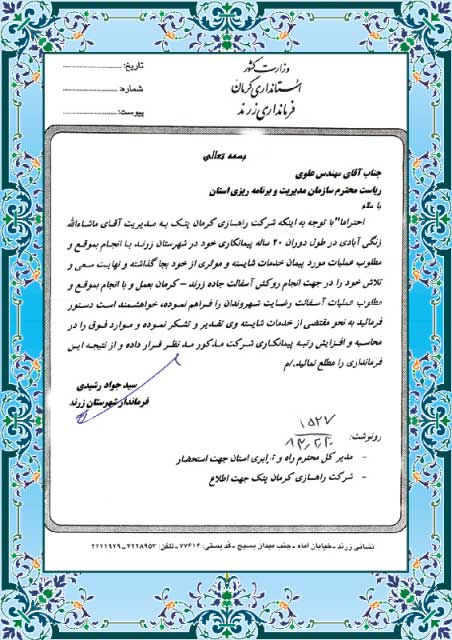 وزارت کشور
استانداری کرمان
فرمانداری زرند
تاریخ:
شماره:
پیوست:
بسمه تعالی
جناب آقای مهندس علوی
ریاست محترم سازمان مدیریت و برنامه ریزی استان
با سلام
احتراما" با توجه به اینکه شرکت راهسازی کرمان پتک به مدیریت آقای ماشاءالله
زنگی آبادی در طول دوران ۲۰ ساله پیمانکاری خود در شهرستان زرند با انجام بموقع و
مطلوب عملیات مورد پیمان خدمات شایسته و موثری از خود بجا گذاشته و نهایت سعی و
تلاش خود را در جهت انجام روکش آسفالت جاده زرند - کرمان بعمل و با انجام بموقع و
مطلوب عملیات آسفالت رضایت شهروندان را فراهم نموده، خواهشمند است دستور
فرمائید به نحو مقتضی از خدمات شایسته وی تقدیر و تشکر نموده و موارد فوق را در
محاسبه و افزایش رتبه پیمانکاری شرکت مذکور مد نظر قرار داده و از نتیجه این
فرمانداری را مطلع نمائید./م
سید جواد رشیدی
فرماندار شهرستان زرند
۱۵۲۷
رونوشت:
- مدیر کل محترم راه و ترابری استان جهت استحضار
- شرکت راهسازی کرمان پتک جهت اطلاع
نشانی زرند - خیابان امام - جنب میدان بسیج - کد پستی: ۷۷۶۱۴ - تلفن: ۴۲۲۸۹۵۳ - ۴۲۲۱۹۲۹